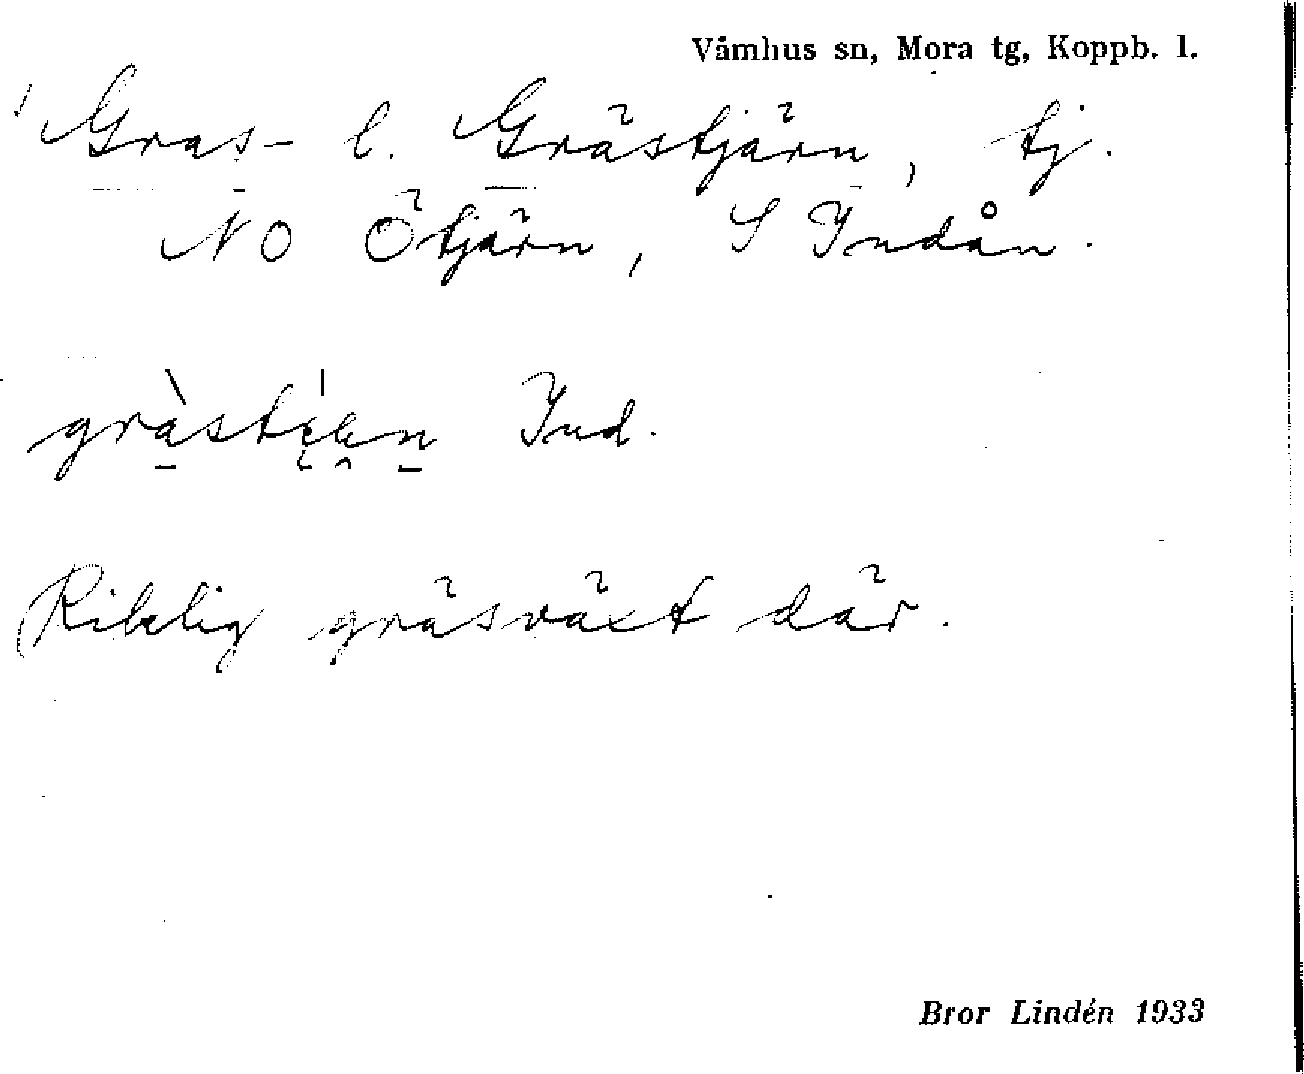 Våmhus sn, Mora tg, Koppb. l.
Gras- l. Grästjärn, tj.
NO Ötjärn, S Indån.
Ind.
Riklig gräsväxt där.
Bror Lindén 1933